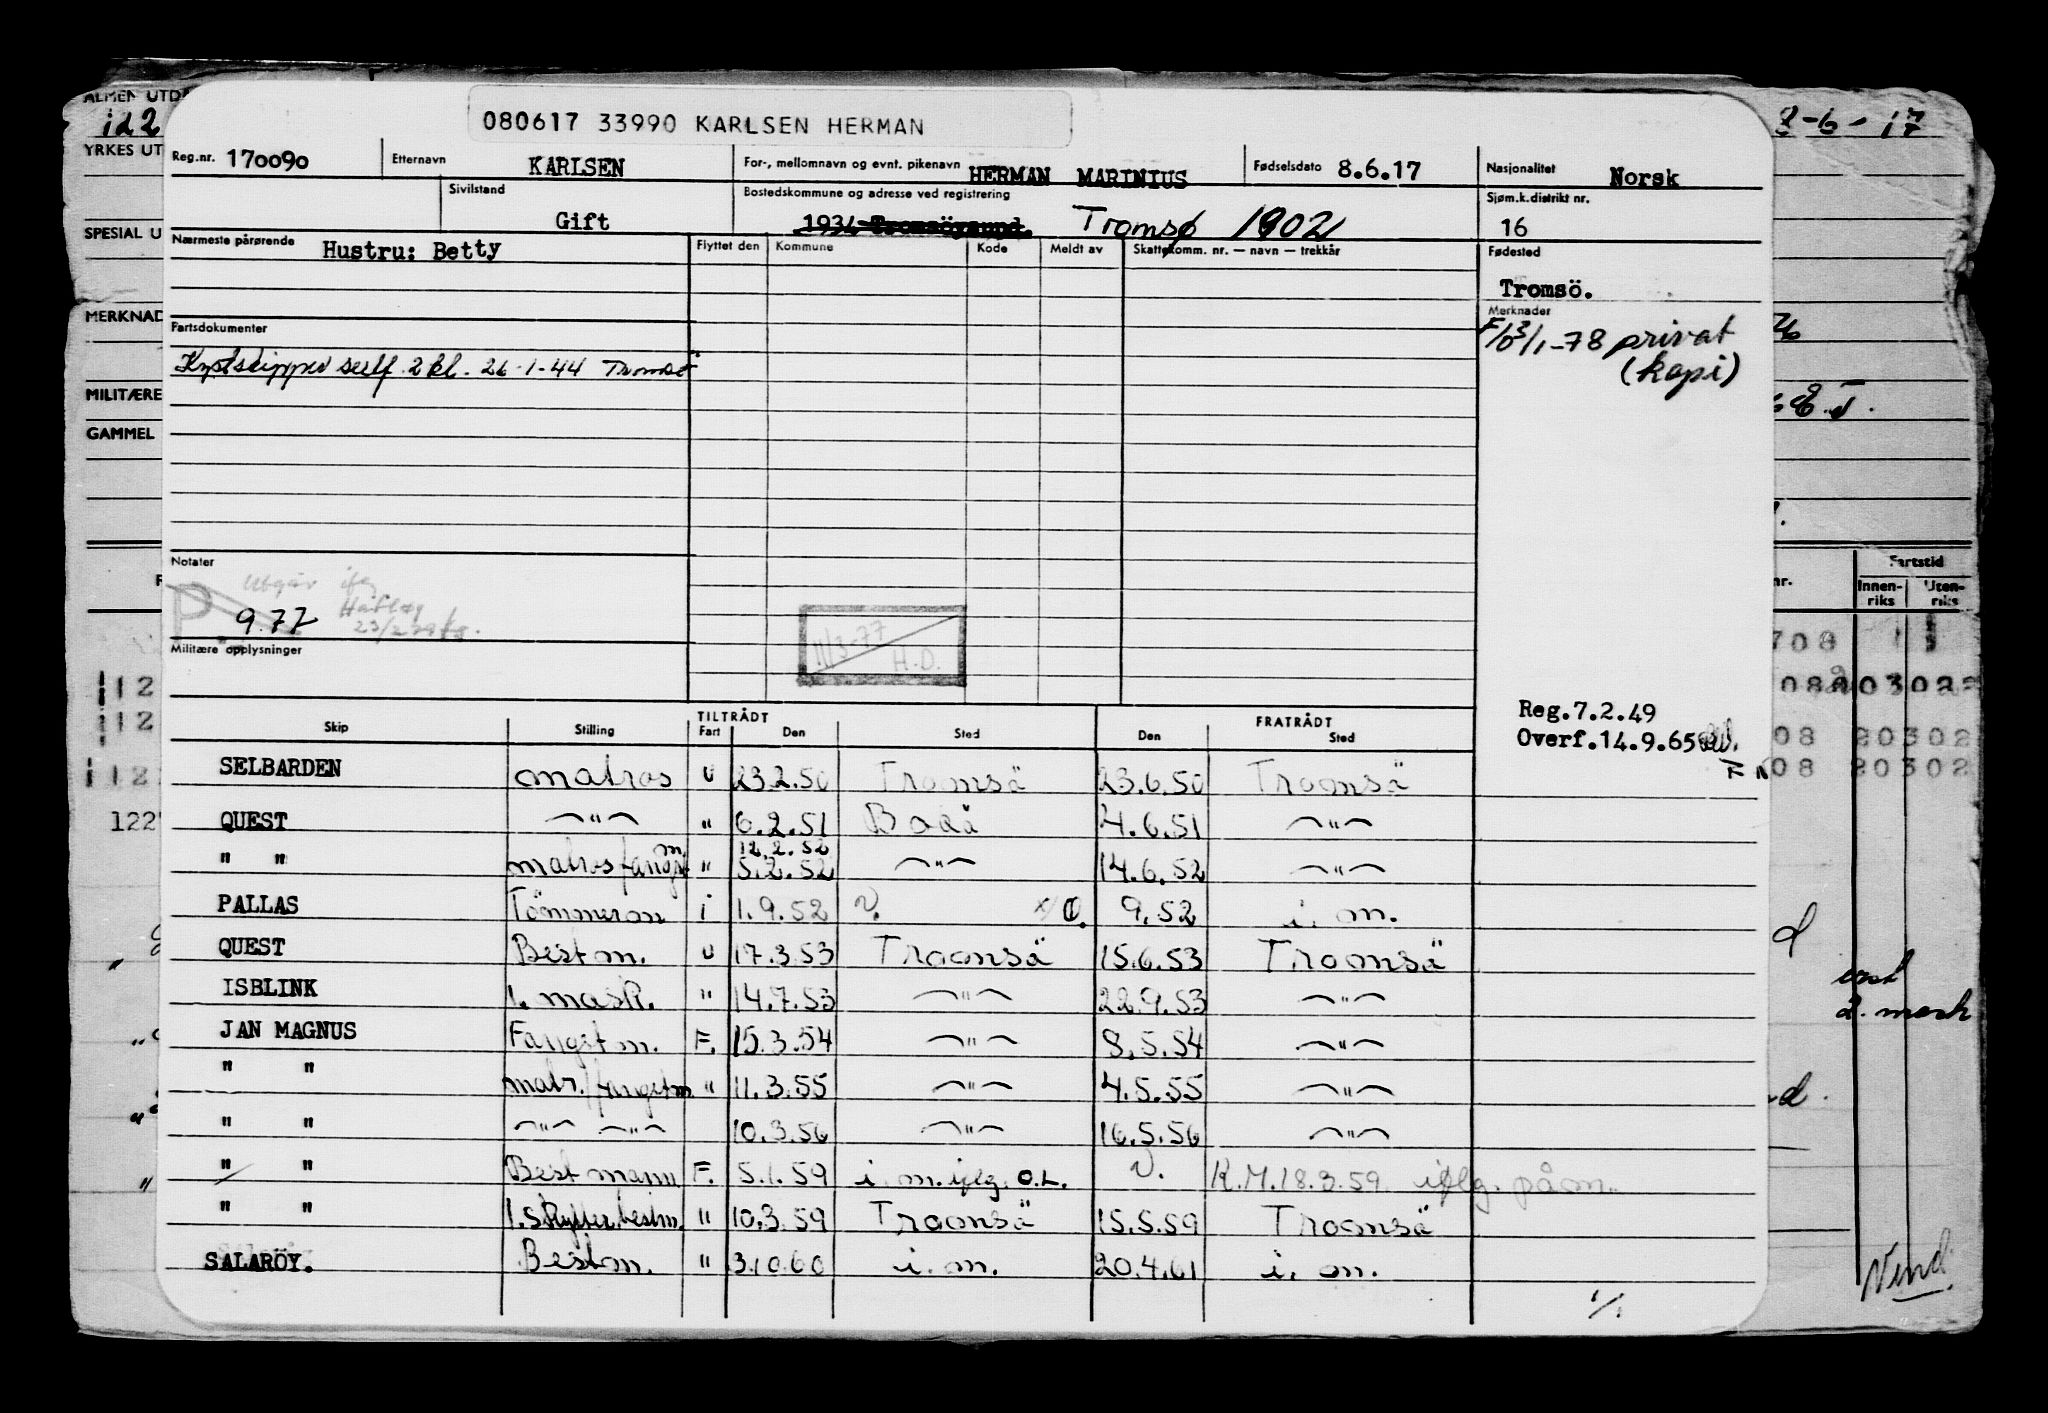 ALMEN UTD
id 2
YRKES UT
SPESIAL U
MERKNAD
MILITÆRE
GAMMEL
080617 33990 KARLSEN HERMAN
8-6-17
Reg.nr. 170090 Etternavn KARLSEN For-, mellomnavn og evnt. pikenavn HERMAN MARINIUS Fødselsdato 8.6.17 Nasjonalitet Norsk
Sivilstand Gift Bostedskommune og adresse ved registrering 1934 Tromsöysund. Tromsø 1902 Sjøm.k.distrikt nr. 16
Nærmeste pårørende Hustru: Betty Flyttet den Kommune Kode Meldt av Skattekomm. nr. — navn — trekkår Fødested
Tromsö.
Merknader
F/Ø 3/1-78 privat
(kopi)
Fartsdokumenter
Kystskipper sertf. 2 kl. 26-1-44 Tromsö
Notater
P Utgår iflg
9.77
11/3-77
H.D.
Militære opplysninger
Reg.7.2.49
Overf.14.9.65
Skip Stilling TILTRÅDT Fart Den Sted FRATRÅDT Den Sted
SELBARDEN matros u 23.2.50 Tromsä 23.6.50 Tromsä
QUEST —"— " 6.2.51 Bodä 4.6.51 —"—
12.2.52
" " matros fangstm " 5.2.52 —"— 14.6.52 —"—
PALLAS Tömmerm i 1.9.52 V. x/O. 9.52 i. m.
QUEST Bestm. u 17.3.53 Tromsä 15.6.53 Tromsä
ISBLINK 1. mask. " 14.7.53 —"— 22.9.53 —"—
JAN MAGNUS Fangstm. F. 15.3.54 —"— 8.5.54 —"—
" " matr./fangstm " 11.3.55 —"— 4.5.55 —"—
" " —"— —"— 10.3.56 —"— 16.5.56 —"—
" " Bestmann F. 5.1.59 i m. iflg. O.L. V. R.M.18.3.59 iflg. påm.
" " 1.skytter bestm. " 10.3.59 Tromsä 15.5.59 Tromsä
SALARÖY. Bestm. " 3.10.60 i. m. 20.4.61 i. m.
1/1
Fartstid
Innen-riks Uten-riks
nr.
708
08 20302
08 20302
112
112
112
122
2. mask
Vend.